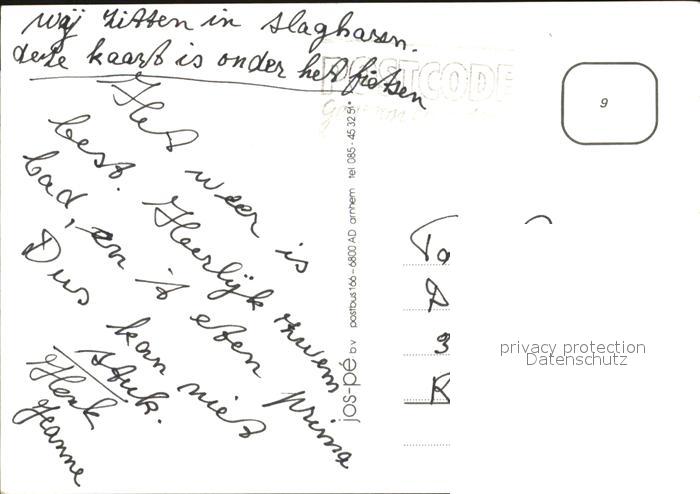 wij zitten in slagharen.
deze kaart is onder het fietsen
Het weer is
best. Heerlijk zwem
bad, en 't eten prima
Dus kan niet
stuk.
Henk
Jeanne
POSTCODE
jos-pé bv postbus 166 - 6800 AD arnhem tel 085 - 45 32 51*
9
To
3
K
privacy protection
Datenschutz